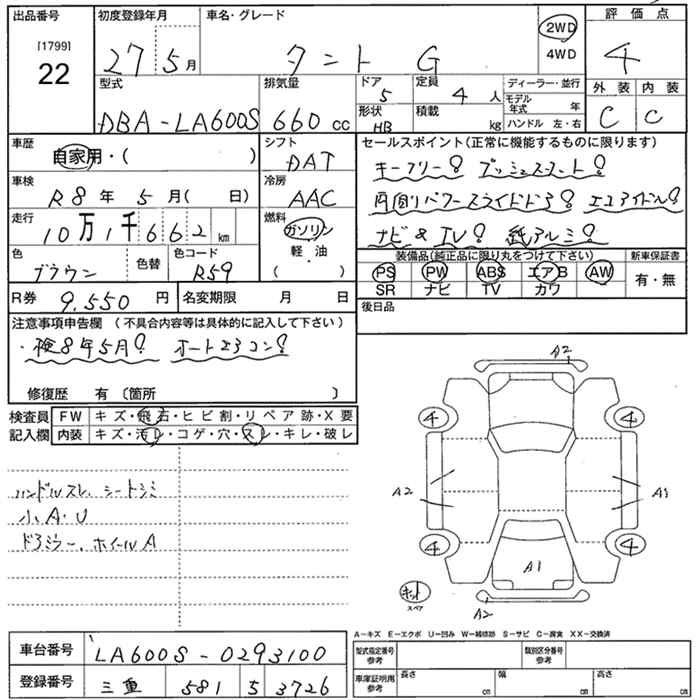 出品番号 初度登録年月 車名・グレード 評価点
[1799]
22 27 5月 タント G 2WD 4WD 4
型式 排気量 ドア 5 定員 4人 ディーラー・並行 外装 内装
DBA-LA600S 660cc 形状 HB 積載 kg モデル年式 年 ハンドル 左・右 C C
車歴 自家用・( ) シフト DAT セールスポイント(正常に機能するものに限ります)
車検 R8年 5月( 日) 冷房 AAC キーフリー! プッシュスタート!
走行 10万1千662km 燃料 ガソリン 軽・油 ( ) 両側パワースライドドア! エコアイドル!
ナビ&TV! 純アルミ!
色 ブラウン 色替 色コード R59 装備品(純正品に限り丸をつけて下さい) 新車保証書
PS PW ABS エアB AW 有・無
R券 9.550円 名変期限 月 日 SR ナビ TV カワ
注意事項申告欄(不具合内容等は具体的に記入して下さい) 後日品
・検8年5月! オートエアコン!
修復歴 有〔箇所 〕
検査員 FW キズ・飛石・ヒビ割・リペア跡・X要
記入欄 内装 キズ・汚レ・コゲ・穴・スレ・キレ・破レ
ハンドルスレ、シートシミ
小A・U
ドアミラー、ホイールA
A2
4 4
A2 A1
4 4
A1
キット
スペア
A2
A-キズ E-エクボ U-凹み W-補修跡 S-サビ C-腐食 XX-交換済
車台番号 LA600S-0293100 型式指定番号 参考 類別区分番号
登録番号 三重 581 ち 3726 車庫証明用 参考 長さ cm 幅 cm 高さ cm